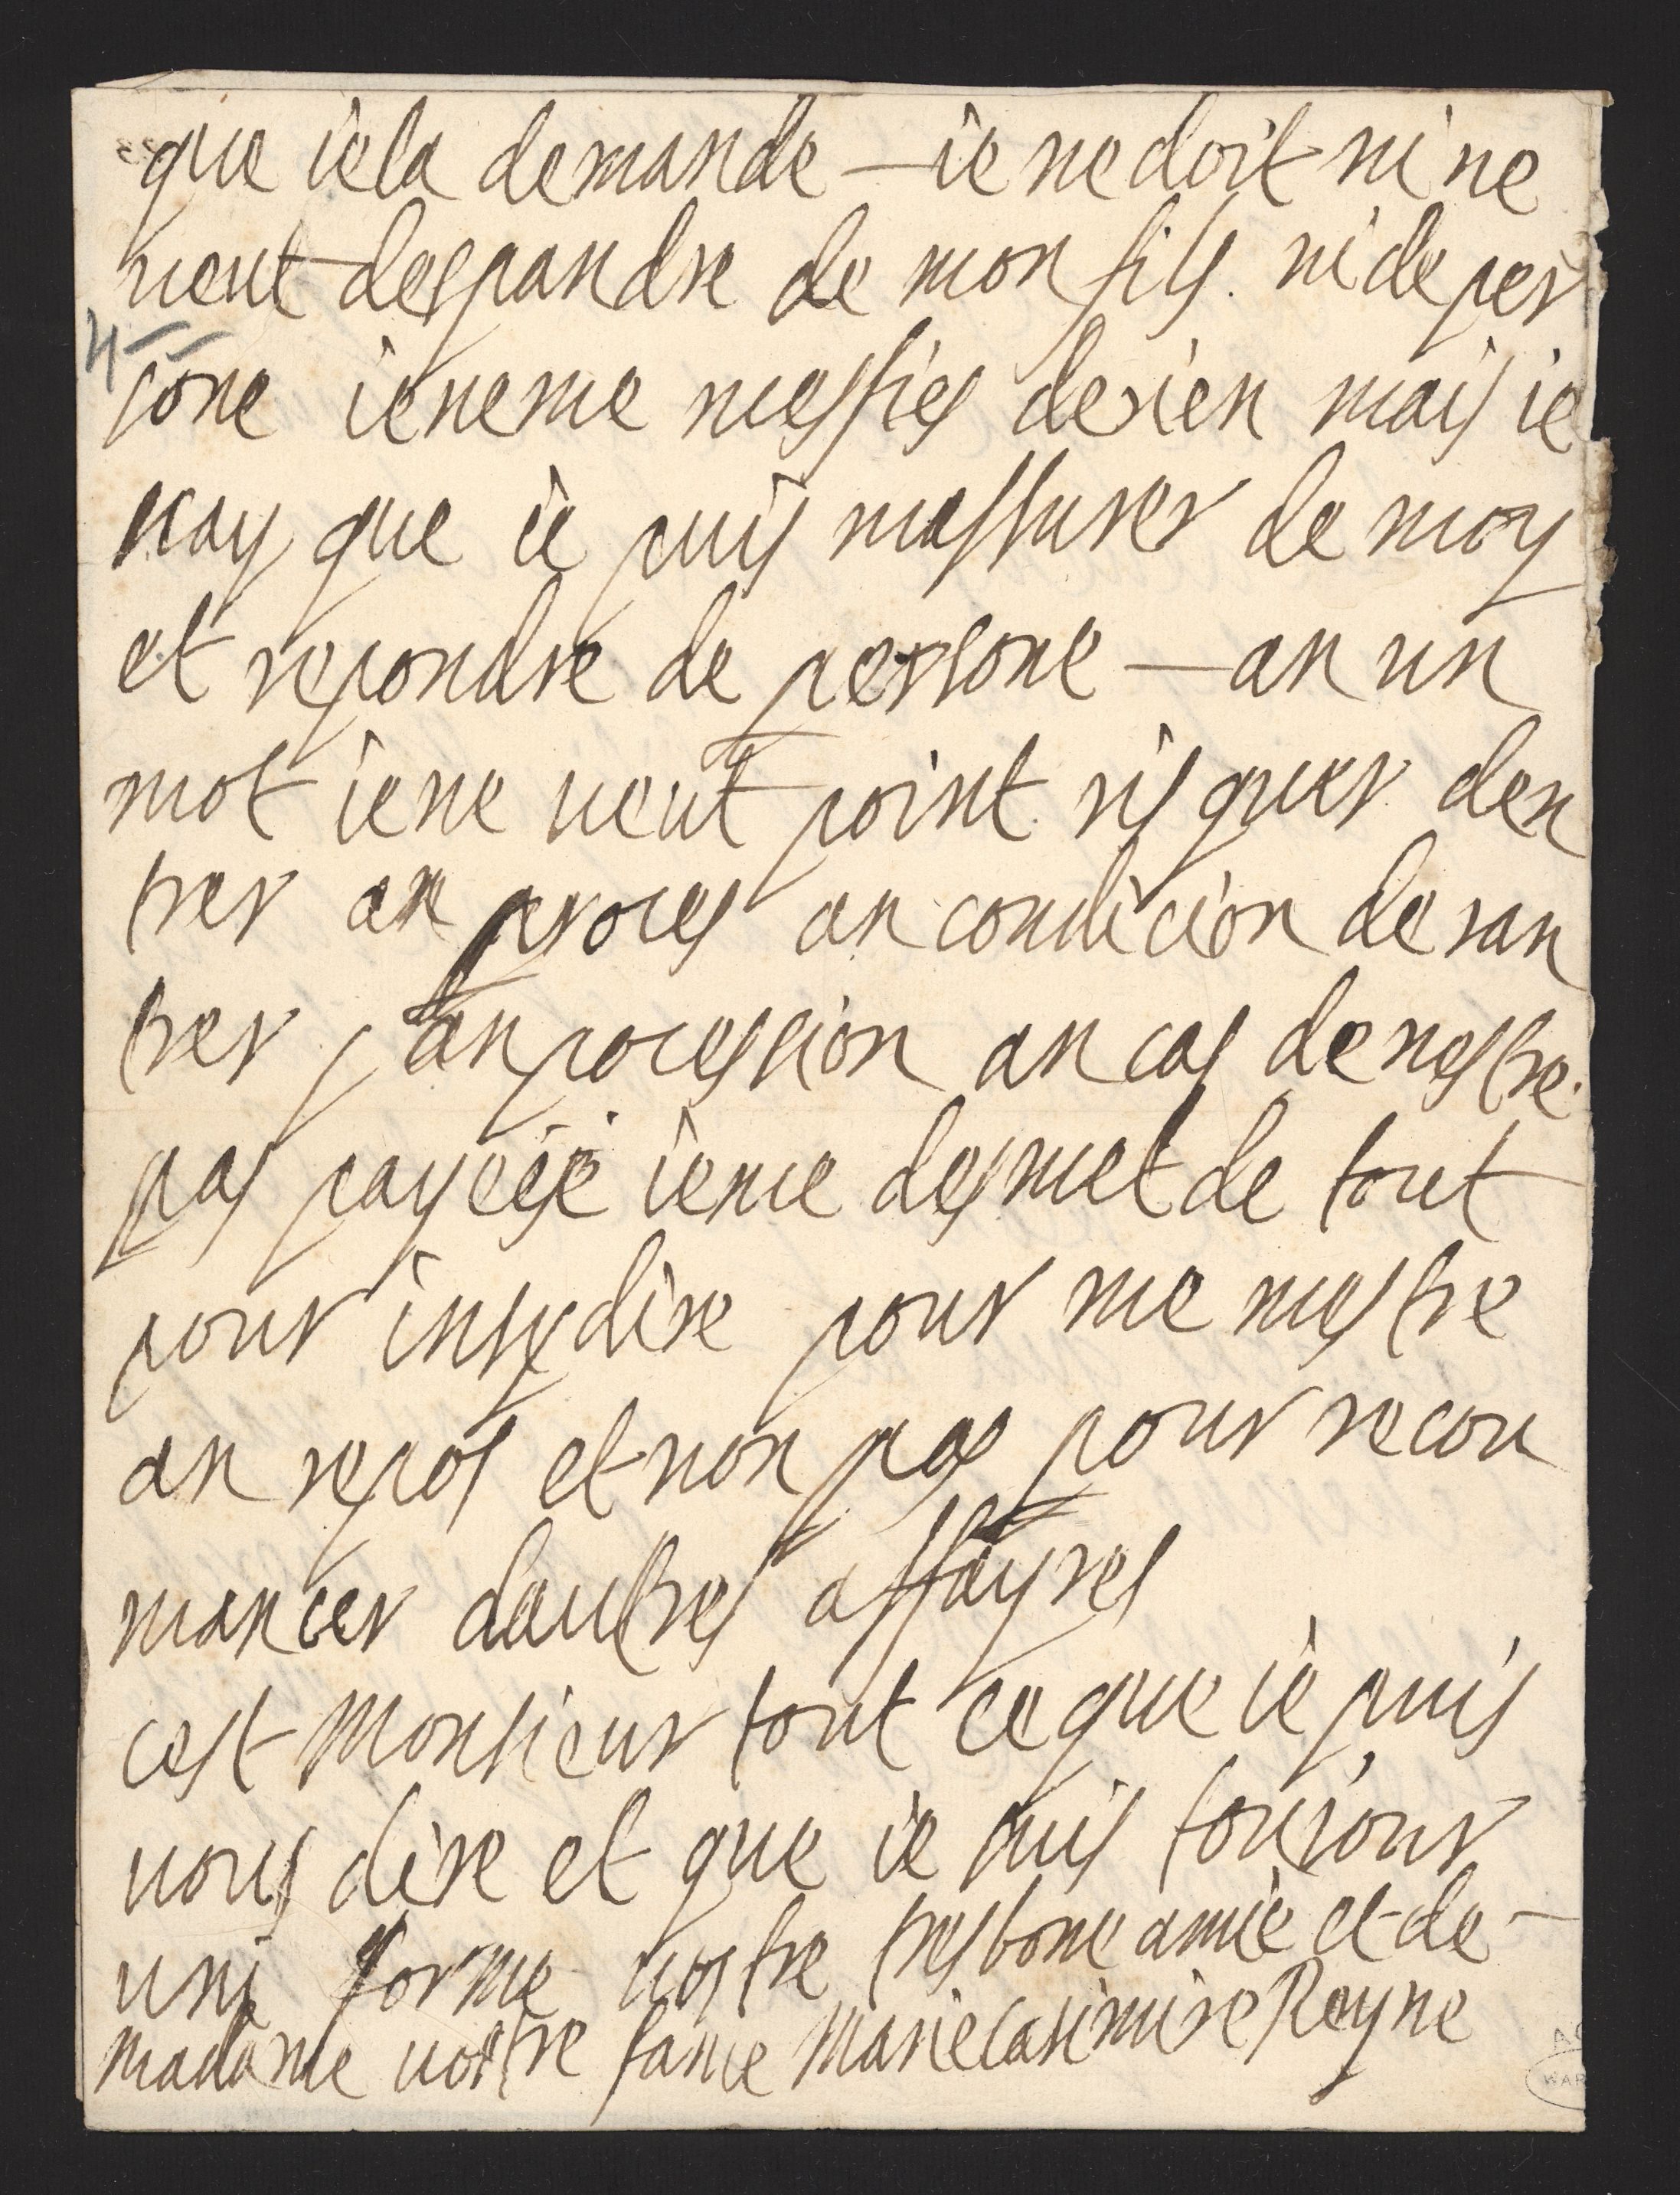 que ie la demande — ie ne doit ni ne
ueut despandre de mon fils. ni de per
sone ie ne me mesfies de rien mais ie
say que ie puis massurer de moy
et repondre de persone — an un
mot ie ne ueut point risquer den
trer an proces an condicion de ran
trer an pocession an cas de nestre
pas payéé ie me desmet de tout
pour insy dire pour me mestre
an repos et non pas pour recou
mancer dautres affayres
cest Monsieur tout ce que ie puis
uous dire et que ie suis toujour
uni forme uostre tres bone amie et de —
madame uostre fame Marie Casimire Reyne
WAR